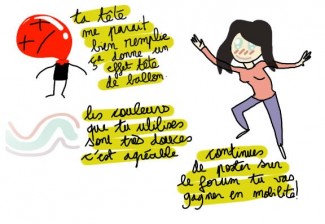 ta tête
me parait
bien remplie
ça donne un
effet tête
de ballon
les couleurs
que tu utilises
sont très douces
c'est agréable
continues
de poster sur
le forum tu vas
gagner en mobilité!